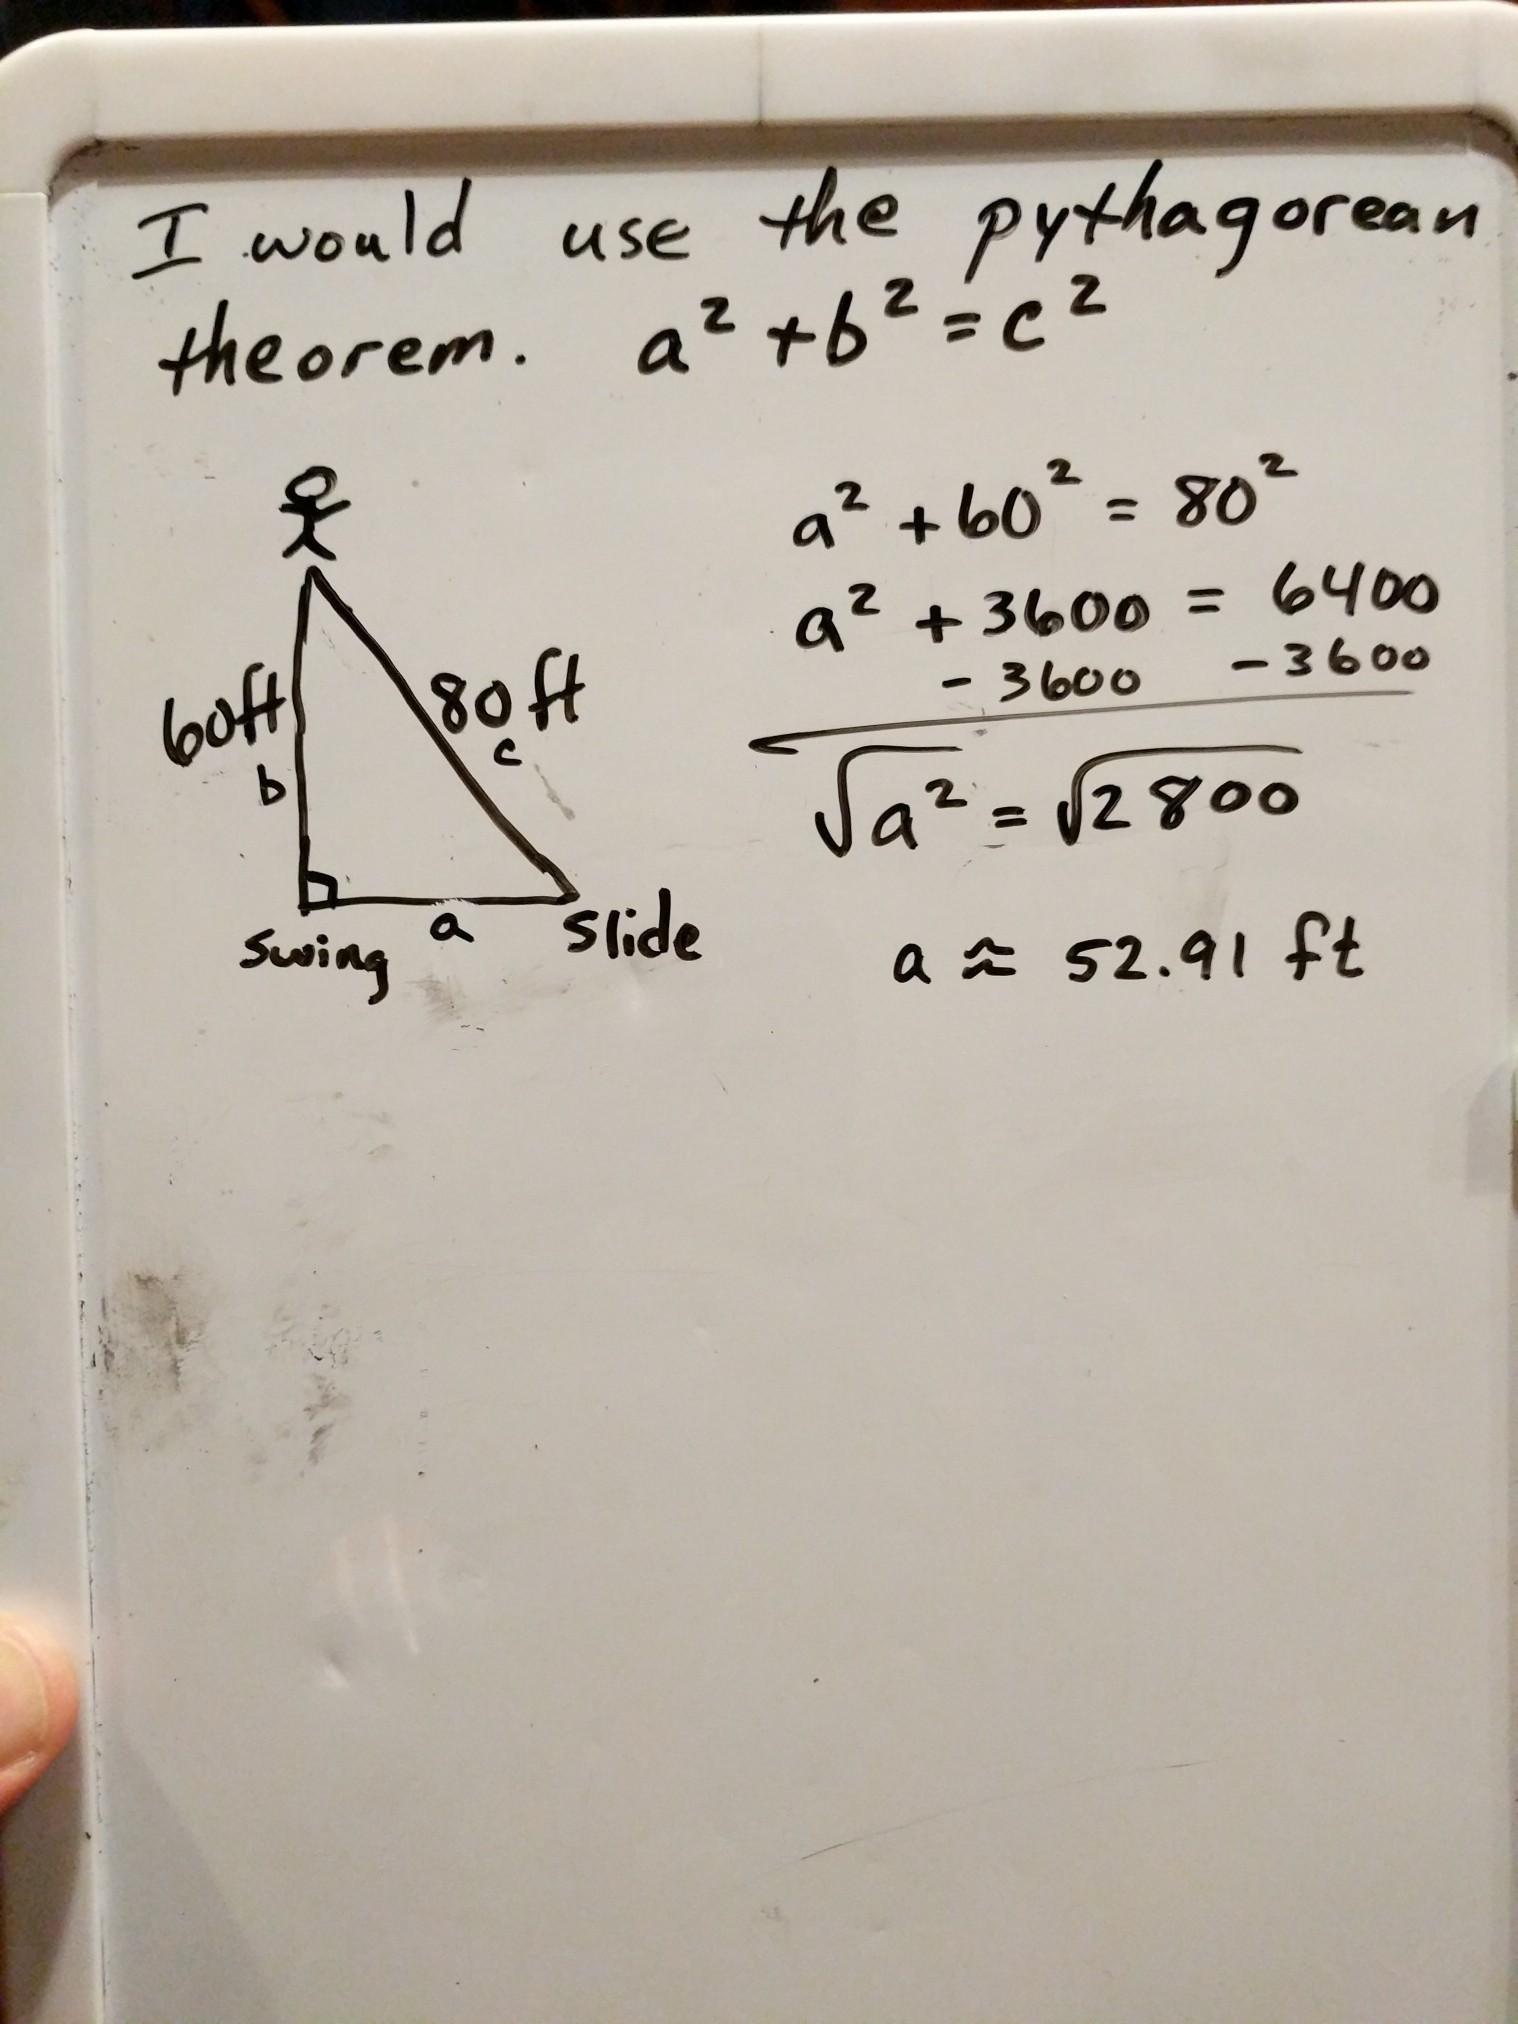 I would use the pythagorean
theorem. a² + b² = c²
60ft
b
80 ft
c
swing
a
slide
a² + 60² = 80²
a² + 3600 = 6400
- 3600 - 3600
√a² = √2800
a ≈ 52.91 ft